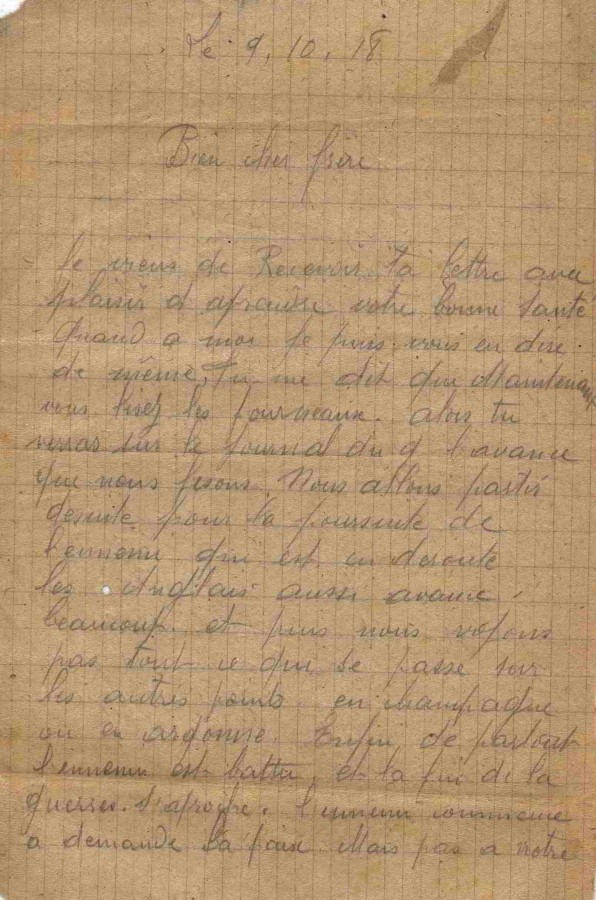 Le 9, 10, 18
Bien cher frère
Je viens de Recevoir Ta lettre avec
plaisir d aprendre votre bonne Santé
quand a moi Je puis vous en dire
de même, Tu me dit que Maintenant
vous lisez les journeaux. alors tu
verras sur le journal du 9 l'avance
que nous fesons. Nous allons partir
desuite pour la poursuite de
l'ennemi qui est en deroute
les Anglais aussi avance
beaucoup. et puis nous voyons
pas tout ce qui se passe sur
les autres points. en champagne
ou en argonne. Enfin de partout
l'ennemi est battu, et la fin de la
guerre. S'aproche. l'ennemi commence
a demande la paix. Mais pas a notre